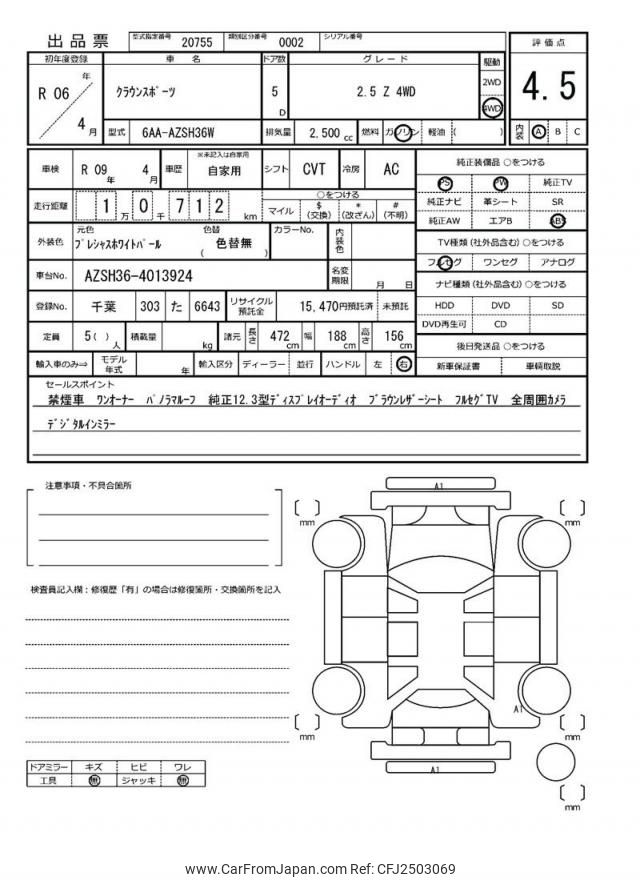 出品票 型式指定番号 20755 類別区分番号 0002 シリアル番号
評価点
4.5
初年度登録 車名 ドア数 グレード 駆動
R 06 年 4 月 クラウンスポーツ 5 D 2.5 Z 4WD 2WD 4WD
型式 6AA-AZSH36W 排気量 2,500 cc 燃料 ガソリン 軽油 ( ) 内装 A B C
車検 R 09 年 4 月 車歴 ※未記入は自家用 自家用 シフト CVT 冷房 AC
純正装備品 ○をつける
PS PW 純正TV
純正ナビ 革シート SR
純正AW エアB ABS
走行距離 1 万 0 千 7 1 2 km ○をつける マイル $ (交換) * (改ざん) # (不明)
外装色 元色 プレシャスホワイトパール 色替 ( 色替無 ) カラーNo. 内装色
TV種類 (社外品含む) ○をつける
フルセグ ワンセグ アナログ
車台No. AZSH36-4013924 名変期限 月 日
ナビ種類 (社外品含む) ○をつける
HDD DVD SD
DVD再生可 CD
登録No. 千葉 303 た 6643 リサイクル預託金 15,470円預託済 未預託
定員 5 ( ) 人 積載量 kg 諸元 長さ 472 cm 幅 188 cm 高さ 156 cm
後日発送品 ○をつける
新車保証書 車輌取説
輸入車のみ⇒ モデル年式 年 輸入区分 ディーラー 並行 ハンドル 左 右
セールスポイント
禁煙車 ワンオーナー パノラマルーフ 純正12.3型ディスプレイオーディオ ブラウンレザーシート フルセグTV 全周囲カメラ
デジタルインミラー
注意事項・不具合箇所
検査員記入欄：修復歴「有」の場合は修復箇所・交換箇所を記入
A1
mm
mm
A1
mm
mm
A1
mm
ドアミラー キズ ヒビ ワレ
工具 無 ジャッキ 無
www.CarFromJapan.com Ref: CFJ2503069